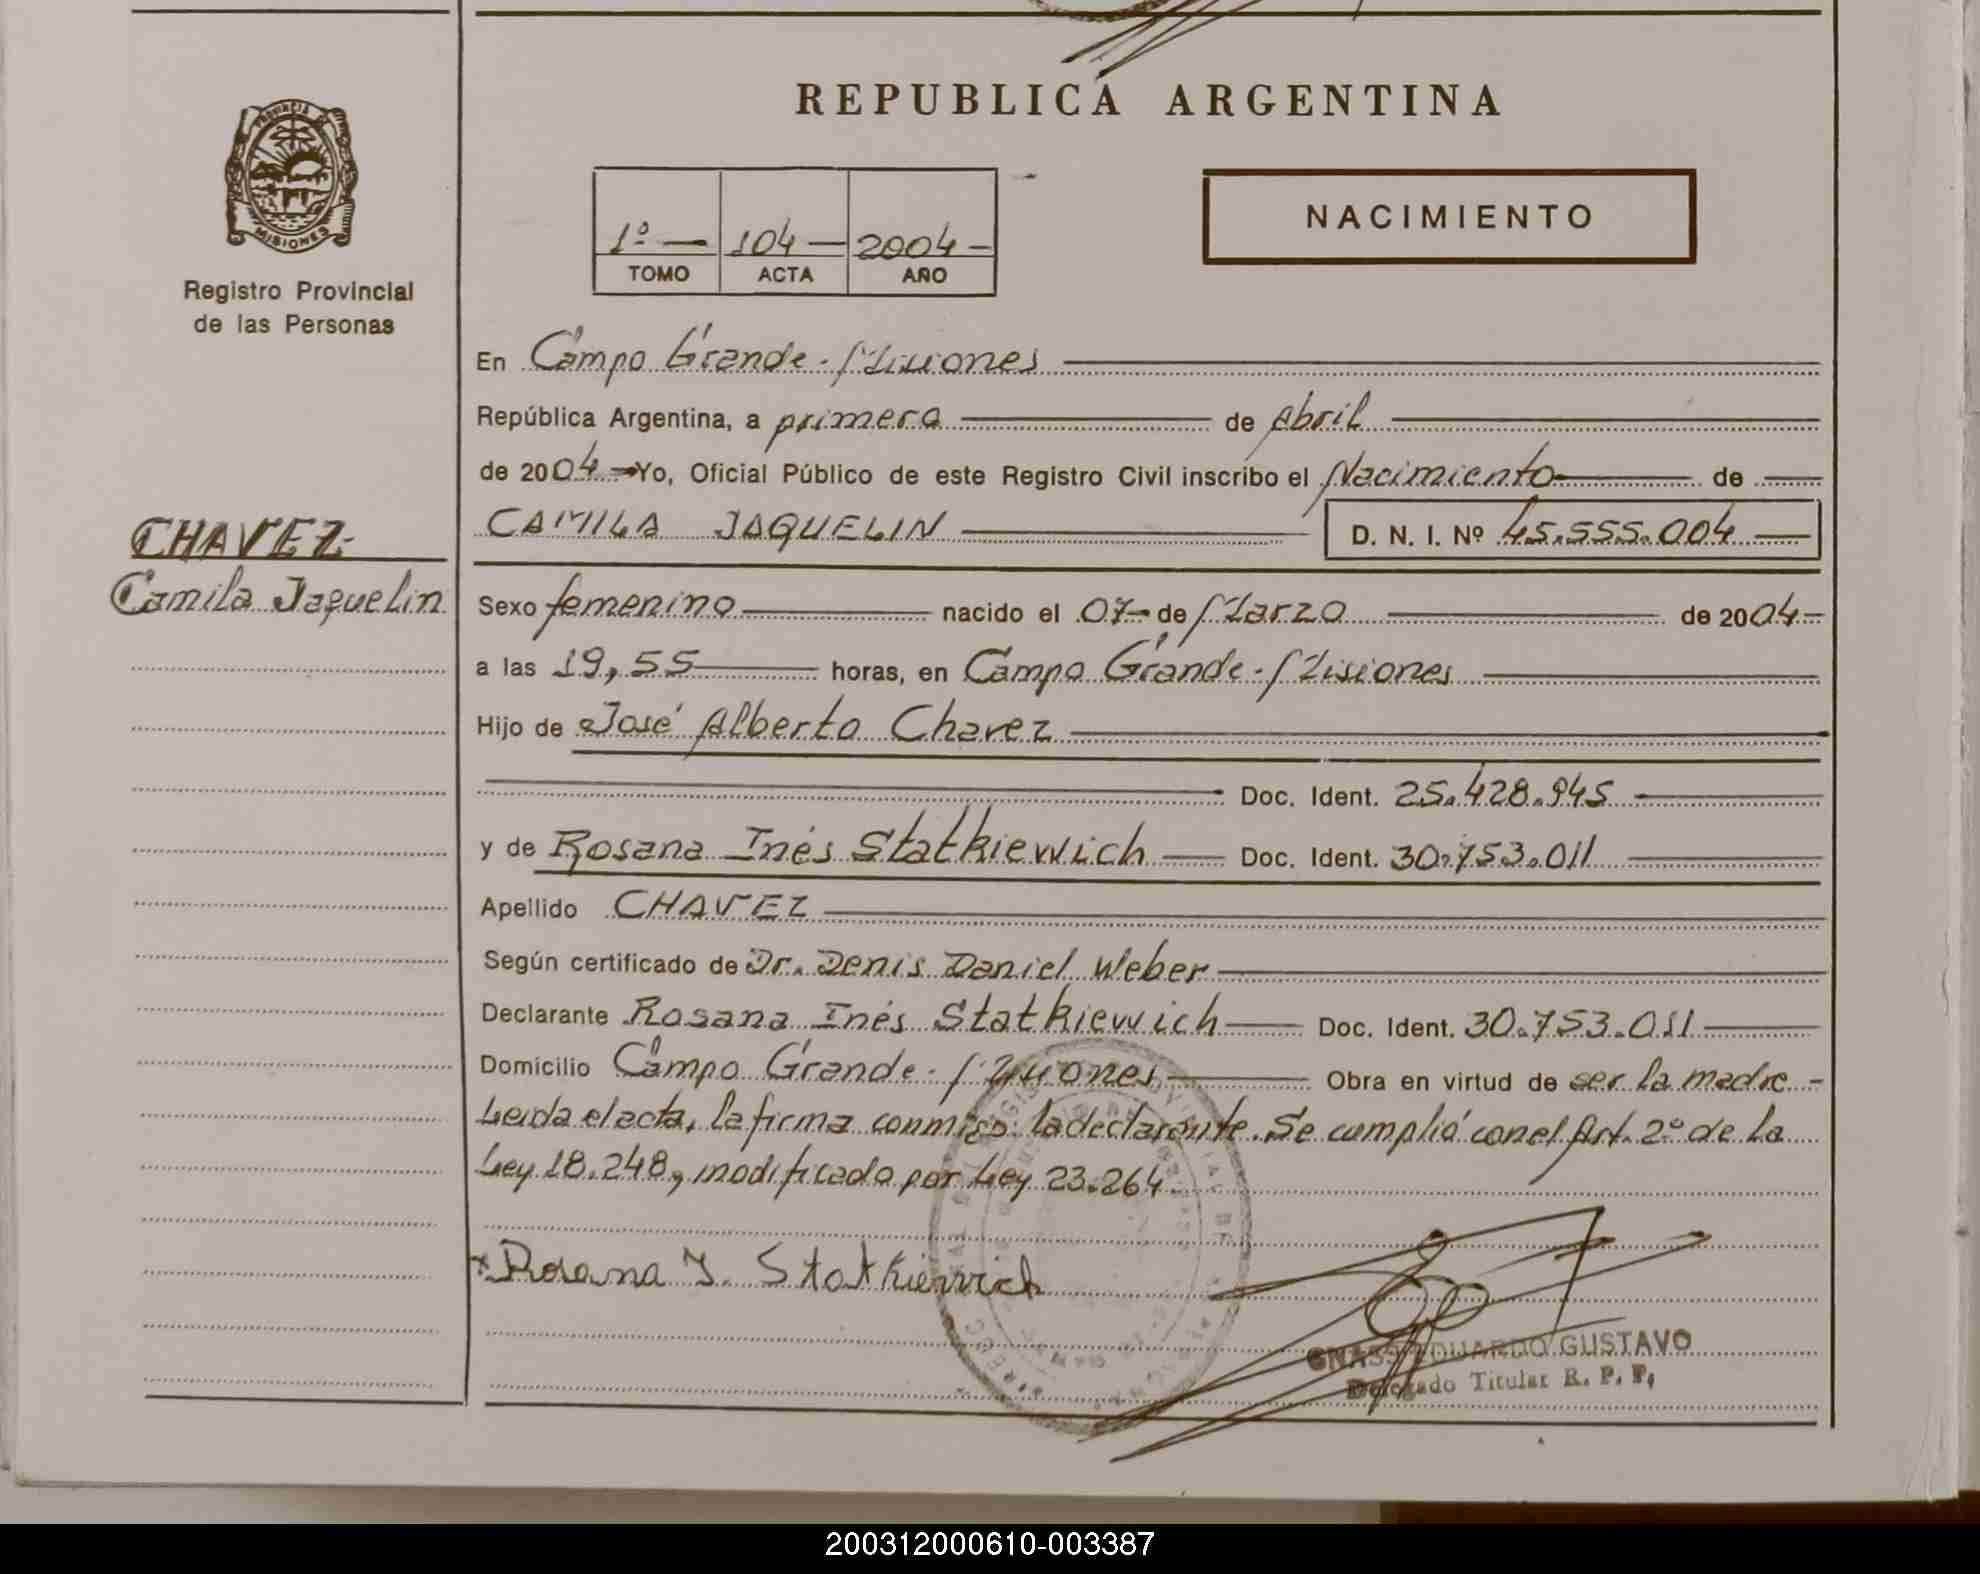 REPUBLICA ARGENTINA
PROVINCIA DE
MISIONES
Registro Provincial
de las Personas
1º — 104 — 2004 —
TOMO ACTA AÑO
NACIMIENTO
En Campo Grande - Misiones
República Argentina, a primero de Abril
de 2004 Yo, Oficial Público de este Registro Civil inscribo el Nacimiento de
CAMILA JAQUELIN D. N. I. Nº 45.555.004
CHAVEZ
Camila Jaquelin
Sexo femenino nacido el 07 de Marzo de 2004
a las 19,55 horas, en Campo Grande - Misiones
Hijo de José Alberto Chavez
Doc. Ident. 25.428.945
y de Rosana Inés Statkiewich Doc. Ident. 30.753.011
Apellido CHAVEZ
Según certificado de Dr. Denis Daniel Weber
Declarante Rosana Inés Statkiewich Doc. Ident. 30.753.011
Domicilio Campo Grande - Misiones Obra en virtud de ser la madre
Leida el acta, la firma conmigo: la declarante. Se cumplió con el Art. 2º de la
Ley 18.248, modificado por Ley 23.264.
Rosana I. Statkiewich
GNASS EDUARDO GUSTAVO
Delegado Titular R. P. P.
200312000610-003387